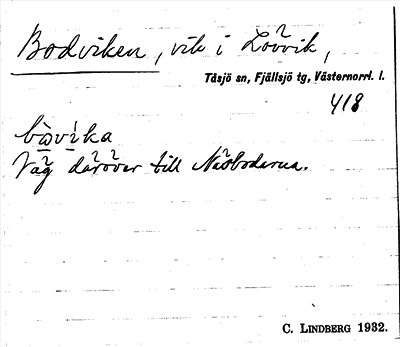 Bodviken, vik i Lövvik,
Tåsjö sn, Fjällsjö tg, Västernorrl. l.
418
bòvìka
Väg däröver till Näsbodarna.
C. LINDBERG 1932.